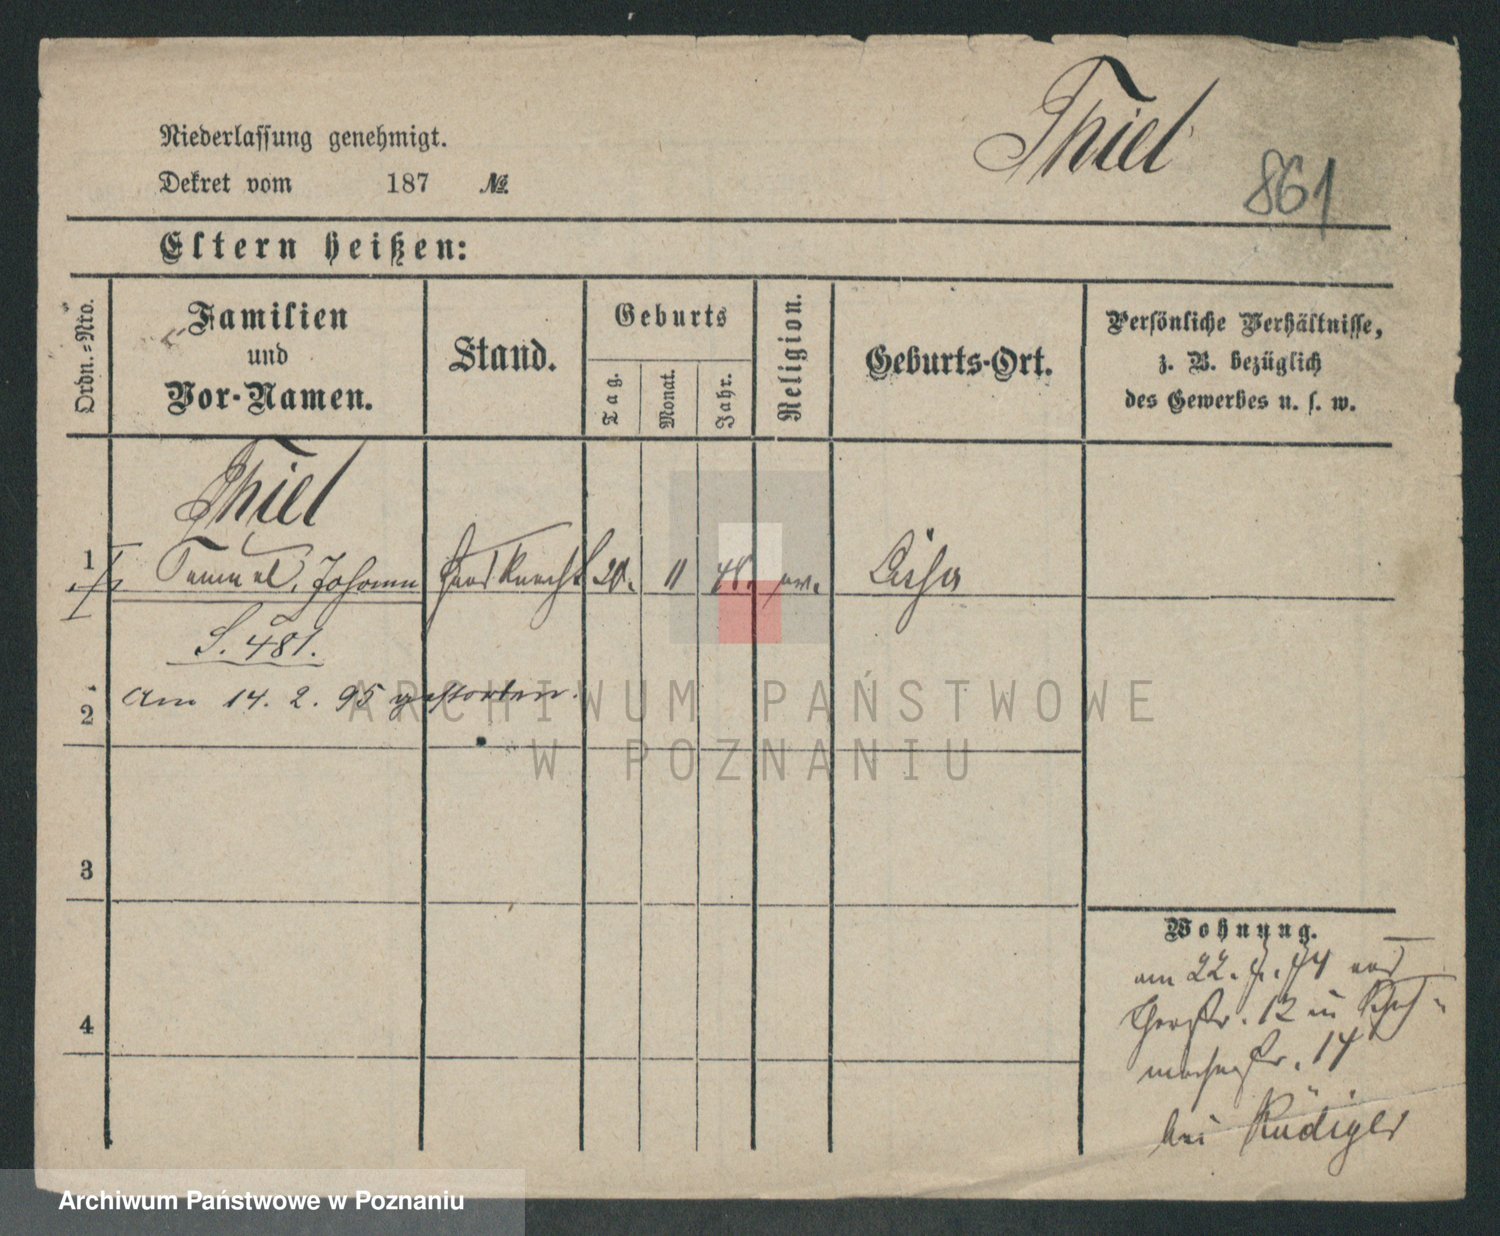 Thiel
861
Niederlassung genehmigt.
Dekret vom 187 №.
Eltern heißen:
Ordn.=Nro.
Familien
und
Vor-Namen.
Stand.
Geburts
Tag.
Monat.
Jahr.
Religion.
Geburts-Ort.
Persönliche Verhältnisse,
z. B. bezüglich
des Gewerbes u. s. w.
Thiel
1 Samuel, Johann Hausknecht 20. 11 48. ev.
S. 481.
2 Am 14. 2. 95 gestorben.
3
4
Wohnung.
am 22. 7. 74 aus
12 in
14
bei Rüdiger
ARCHIWUM PAŃSTWOWE
W POZNANIU
Archiwum Państwowe w Poznaniu